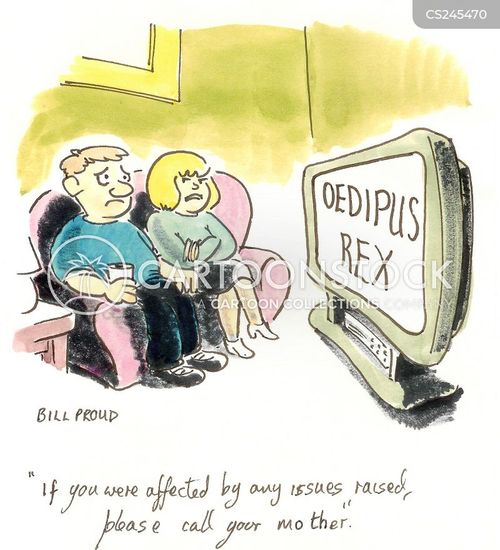 CS245470
OEDIPUS
REX
CARTOONSTOCK
A CARTOON COLLECTIONS COMPANY
BILL PROUD
"If you were affected by any issues raised,
please call your mother".